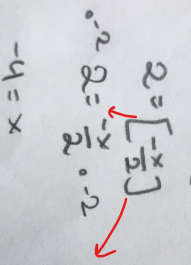 2 = [-x/2]
• -2 2 = -x/2 • -2
-4 = x